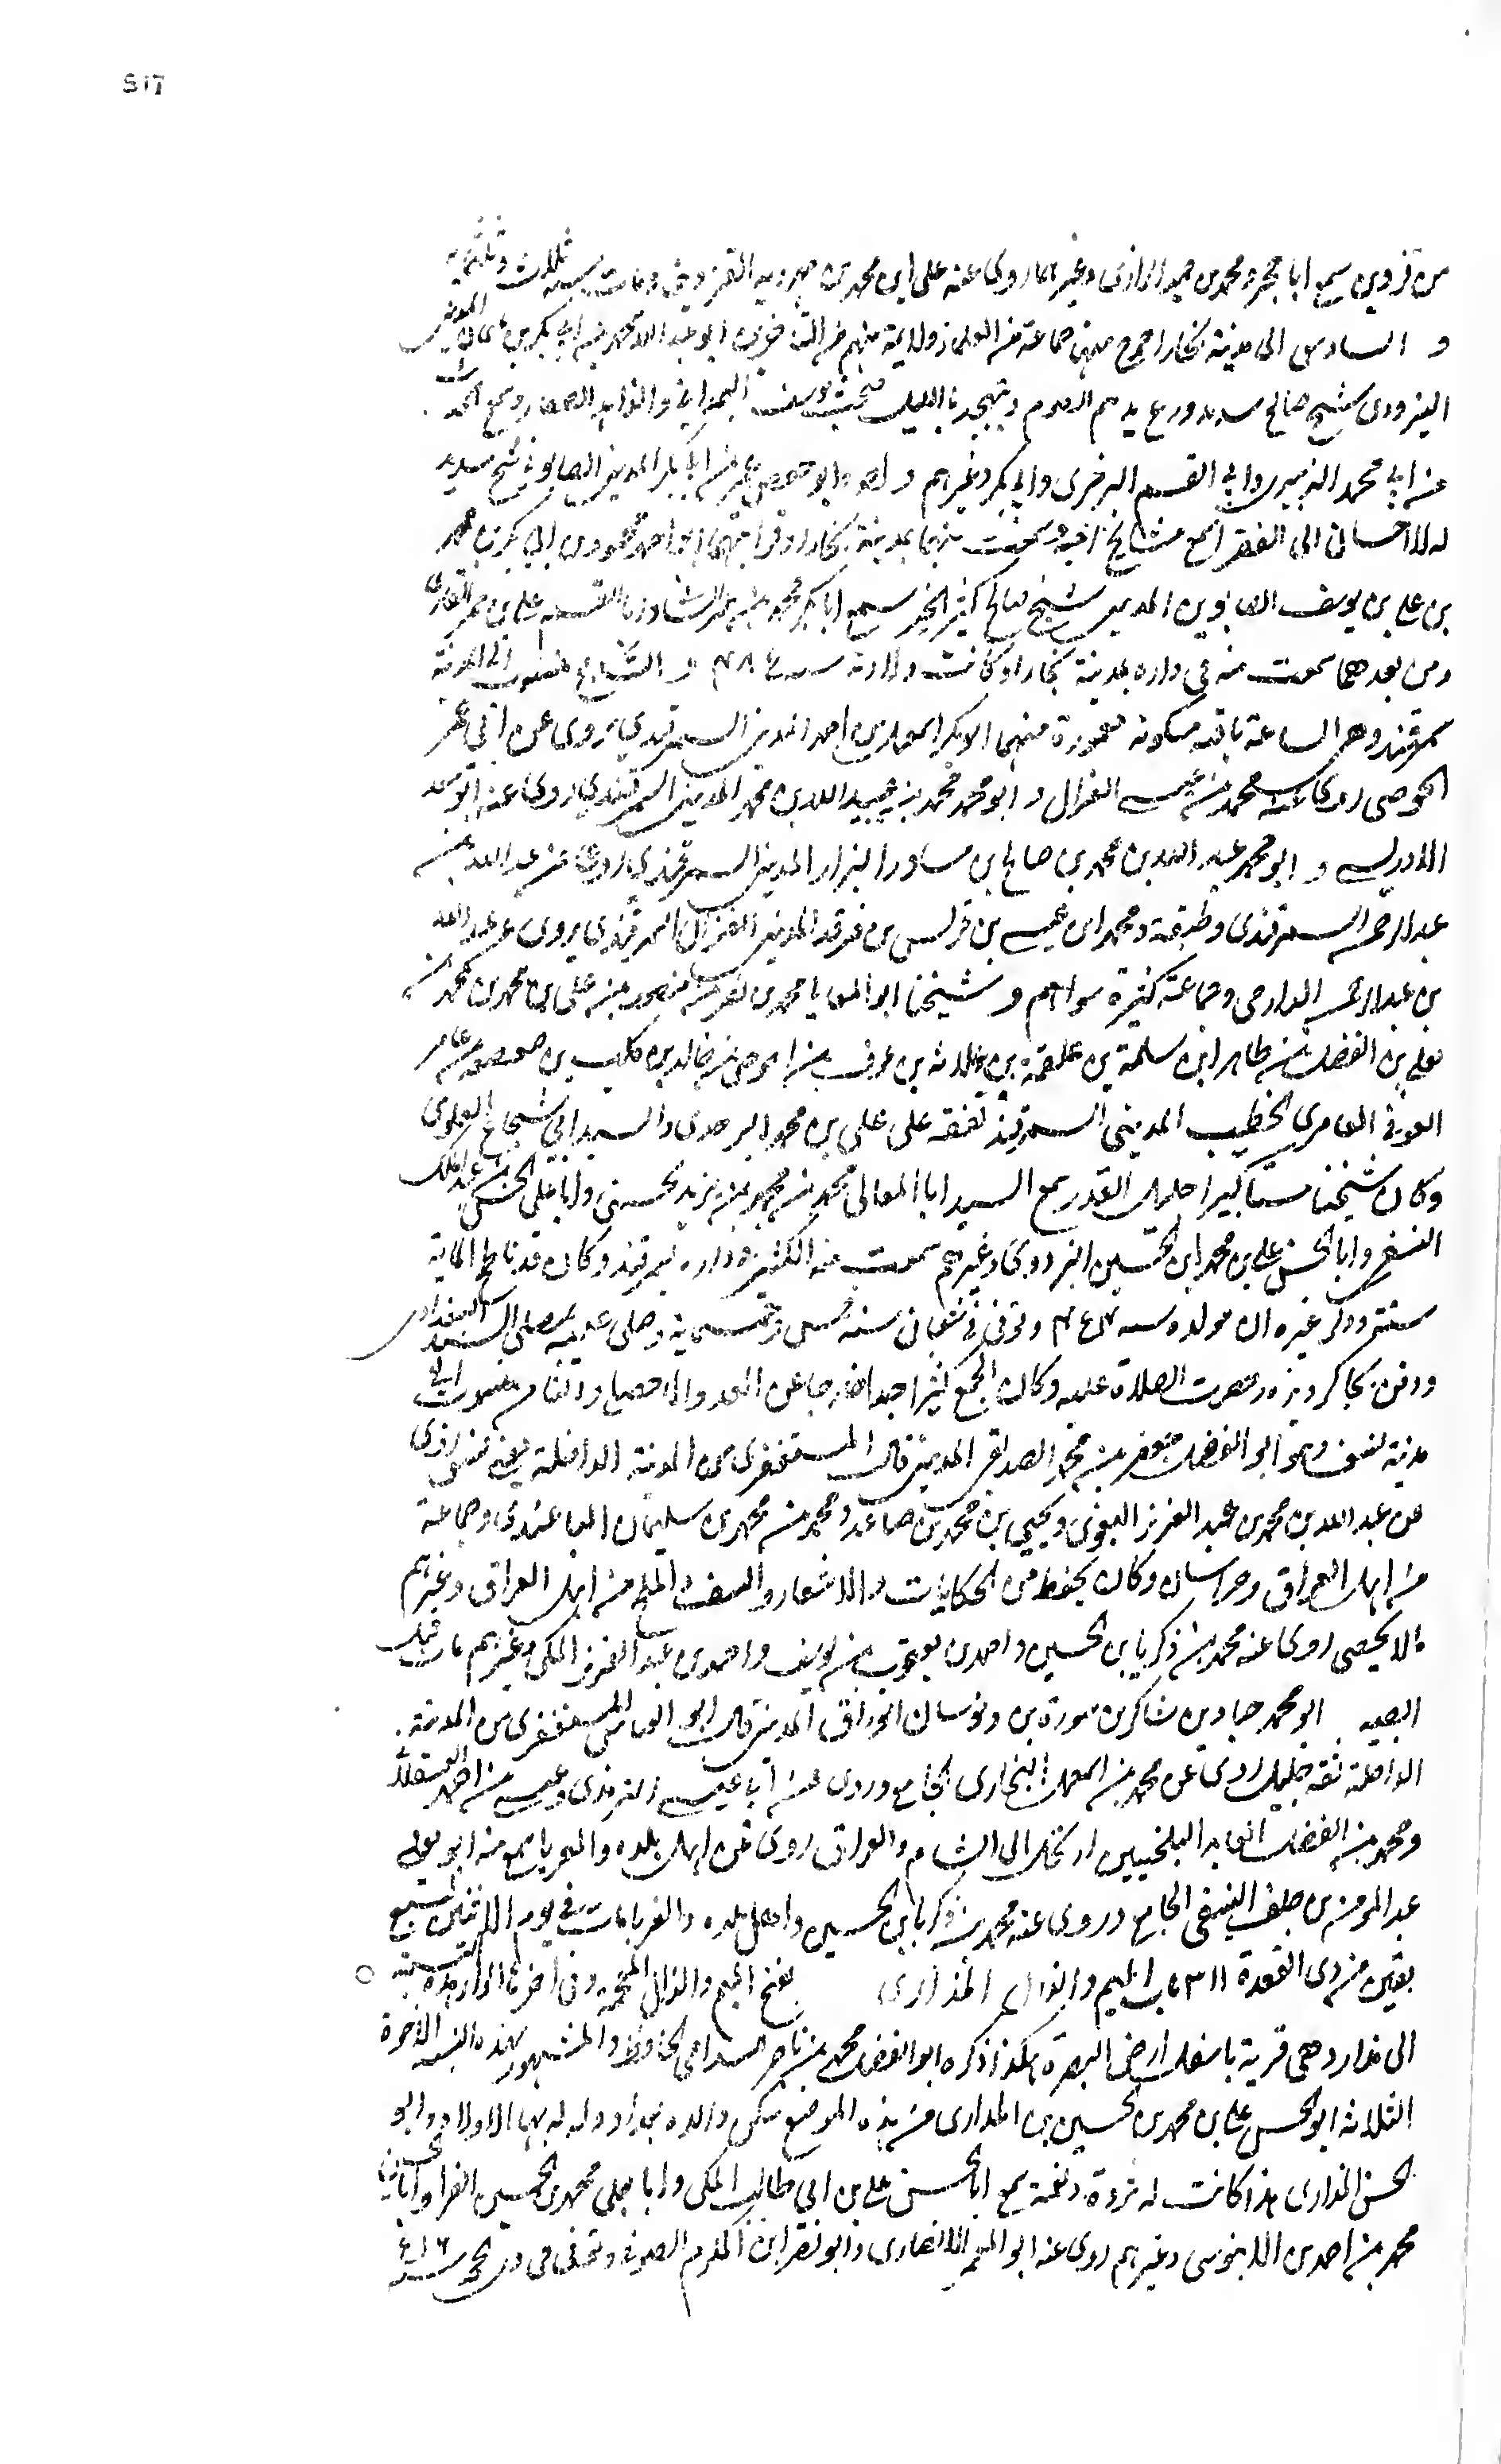 S 17
من قزوين سمع ابا حجر ومحمد بن حميد الرازى وغيرهما روى عنه على ابن محمد بن مهرويه القزوينى ومات سنة ثلاث وثلثمايه
و السادس الى مدينة بخارا خرج منها جماعة من العلماء منهم من المتاخرين ابو عبد الله محمد بن ابى بكر بن عثمان المدينى
البزدوى شيخ صالح سديد ورع يديم الصوم ويتهجد بالليل صحب يوسف الهمدانى والزاهد الصفار وسمع الحديث
عن ابى محمد الزبيرى وابى القسم البرخرى وابى بكر وغيرهم و اخوه ابو حفص عمر بن ابى بكر المدينى الصابونى شيخ سديد
له الاحسان الى الفقرا سمع مشايخ اخيه وسمعت منهما بمدينة بخارا وقرابتهما ابو احمد محمود بن ابى بكر بن محمد
بن على بن يوسف الصابونى المدينى شيخ صالح كثير الخير سمع ابا بكر محمد بن
ومن بعدهما سمعت منه فى داره بمدينة بخارا وكانت ولادته سنة ٤٨ و السابع منسوب الى مدينة
سمرقند وهى الساعة باقية مسكونة معمورة منها ابو بكر اسمعيل بن احمد المدينى السمرقندى يروى عن ابى عمر
الحوضى روى عنه محمد بن عيسى الغزال و ابو محمد محمد بن عبيد الله بن محمد المدينى السمرقندى روى عنه ابو سعد
الادريسى و ابو محمد عبد الله بن محمد بن صالح بن مساور البزار المدينى السمرقندى روى عن عبد الله بن
عبد الرحمن السمرقندى وطبقته ومحمد ابن عيسى بن قريش بن فرقد المدينى الغزال السمرقندى يروى عن عبد الله
بن عبد الرحمن الدارمى وجماعة كثيرة سواهم و شيخنا ابو المعالى محمد بن نصر بن منصور بن على بن محمد بن محمد بن
يعلى بن الفضل بن طاهر ابن سلمة بن علقمة بن علاثة بن عوف بن احوص بن خالد بن كليب بن صعصعة بن عامر
العوفى العامرى الخطيب المدينى السمرقندى تفقه على على بن محمد البزدوى والسيد ابى شجاع العلوى
وكان شيخنا مسنا كبيرا جليل القدر سمع السيد ابا المعالى محمد بن محمد بن زيد الحسينى وابا على الحسن بن عبد الملك
النسفى وابا الحسن على بن محمد ابن الحسين البزدوى وغيرهم سمعت منه الكثير فى داره بسمرقند وكان قد ناطح الماية
سنة وذكر غيره ان مولده سنة ٤٥٣ وتوفى فى شعبان سنة خمس وخمسماية وصلى عليه بمصلى السيد البغدادى
ودفن بجاكرديزه وحضرت الصلاة عليه وكان الجمع كثيرا جدا خارجا عن العد والاحصا والثامن منسوب الى
مدينة نسف وهو ابو الفضل جعفر بن محمد الصديق المدينى قال المستغفرى من المدينة الداخلة يعنى نسف روى
عن عبد الله بن محمد بن عبد العزيز البغوى ويحيى بن محمد بن صاعد ومحمد بن محمد بن سليمان الباغندى وجماعة
من اهل العراق وخراسان وكان يحفظ من الحكايات والاشعار والنتف والملح من اهل العراق وغيرهم
مالا يحصى روى عنه محمد بن زكريا بن الحسين واحمد بن يعقوب بن يوسف واحمد بن عبد العزيز المكى وغيرهم مات قبل
ابو محمد حماد بن شاكر بن سورة بن ونوسان الوراق المدينى قال ابو العباس المستغفرى من المدينة
الداخلة ثقة جليل روى عن محمد بن اسمعيل البخارى الجامع وروى عن ابى عيسى الترمذى وعيسى بن احمد العسقلانى
ومحمد بن الفضل العابد البلخيين ارتحل الى الشام والعراق روى عن اهل بلده والغربا سمع منه ابو يعلى
عبد المومن بن خلف النسفى الجامع وروى عنه محمد بن زكريا بن الحسين واهل بلده والغربا مات فى يوم الاثنين لسبع
بقين من ذى القعدة ٣١١ باب الميم والذال المذارى بفتح الميم والذال المعجمة وفى اخرها الرا هذه النسبة
الى مذار وهى قرية باسفل ارض البصرة هكذا ذكره ابو الفضل محمد بن ناصر السلامى الحافظ والمشهور بهذه النسبة الاخوة
الثلاثة ابو الحسن على بن محمد بن الحسين بن المذارى من هذه الموضع سكن والده بغداد وولد له بها الاولاد وابو
الحسن المذارى هذا كانت له ثروة ونعمة سمع ابا الحسن على بن ابى طالب المكى وابا يعلى محمد بن الحسين الفرا وابا الحسين
محمد بن احمد بن الابنوسى وغيرهم روى عنه ابو المعمر الانصارى وابو نصر ابن المكرم الصوفى وتوفى فى